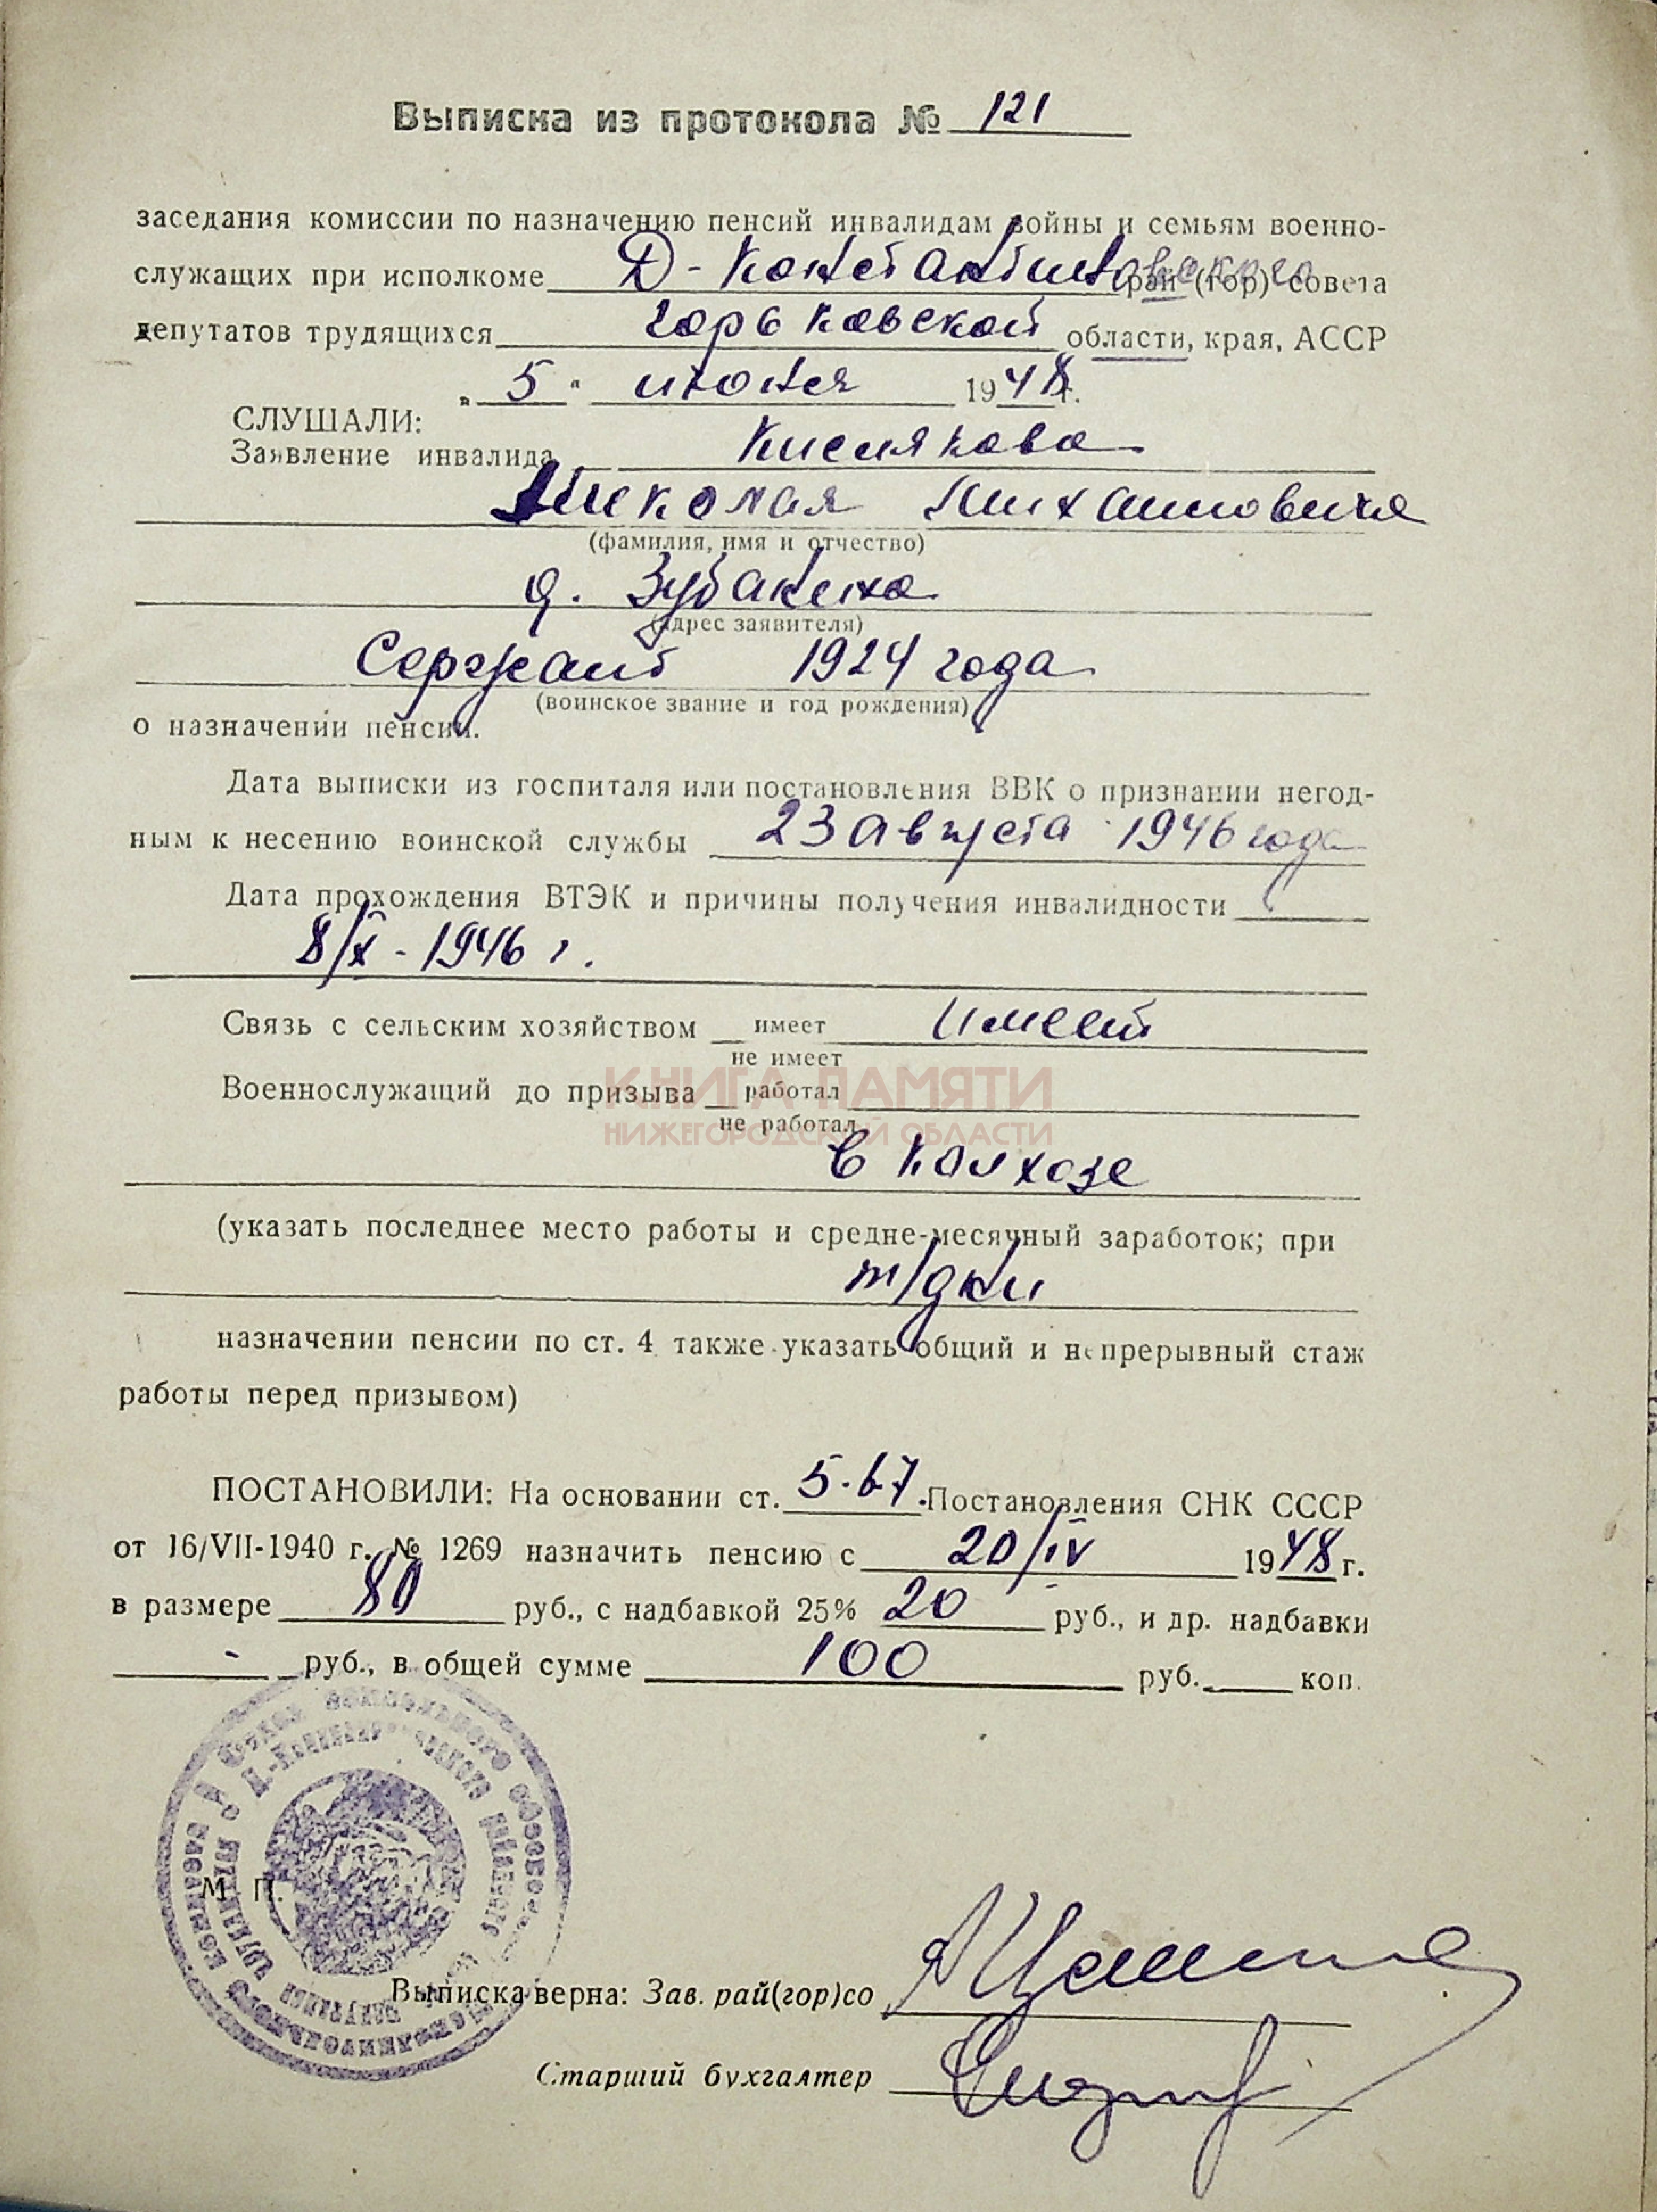 Выписка из протокола № 121
заседания комиссии по назначению пенсий инвалидам войны и семьям военно-
служащих при исполкоме Д-Константиновского рай (гор) совета
депутатов трудящихся Горьковской области, края, АССР
„ 5 " июня 1948 г.
СЛУШАЛИ:
Заявление инвалида Кислякова
Николая Михайловича
(фамилия, имя и отчество)
д. Зубаниха
(адрес заявителя)
Сержант 1924 года
(воинское звание и год рождения)
о назначении пенсии.
Дата выписки из госпиталя или постановления ВВК о признании негод-
ным к несению воинской службы 23 августа 1946 года
Дата прохождения ВТЭК и причины получения инвалидности
8/X - 1946 г.
Связь с сельским хозяйством имеет имеет
не имеет
Военнослужащий до призыва работал
не работал
КНИГА ПАМЯТИ
НИЖЕГОРОДСКОЙ ОБЛАСТИ
в колхозе
(указать последнее место работы и средне-месячный заработок; при
т/дни
назначении пенсии по ст. 4 также указать общий и непрерывный стаж
работы перед призывом)
ПОСТАНОВИЛИ: На основании ст. 5-6-7. Постановления СНК СССР
от 16/VII-1940 г. № 1269 назначить пенсию с 20/IV 1948 г.
в размере 80 руб., с надбавкой 25% 20 руб., и др. надбавки
- руб., в общей сумме 100 руб. коп.
М. П.
Выписка верна: Зав. рай(гор)со
Старший бухгалтер